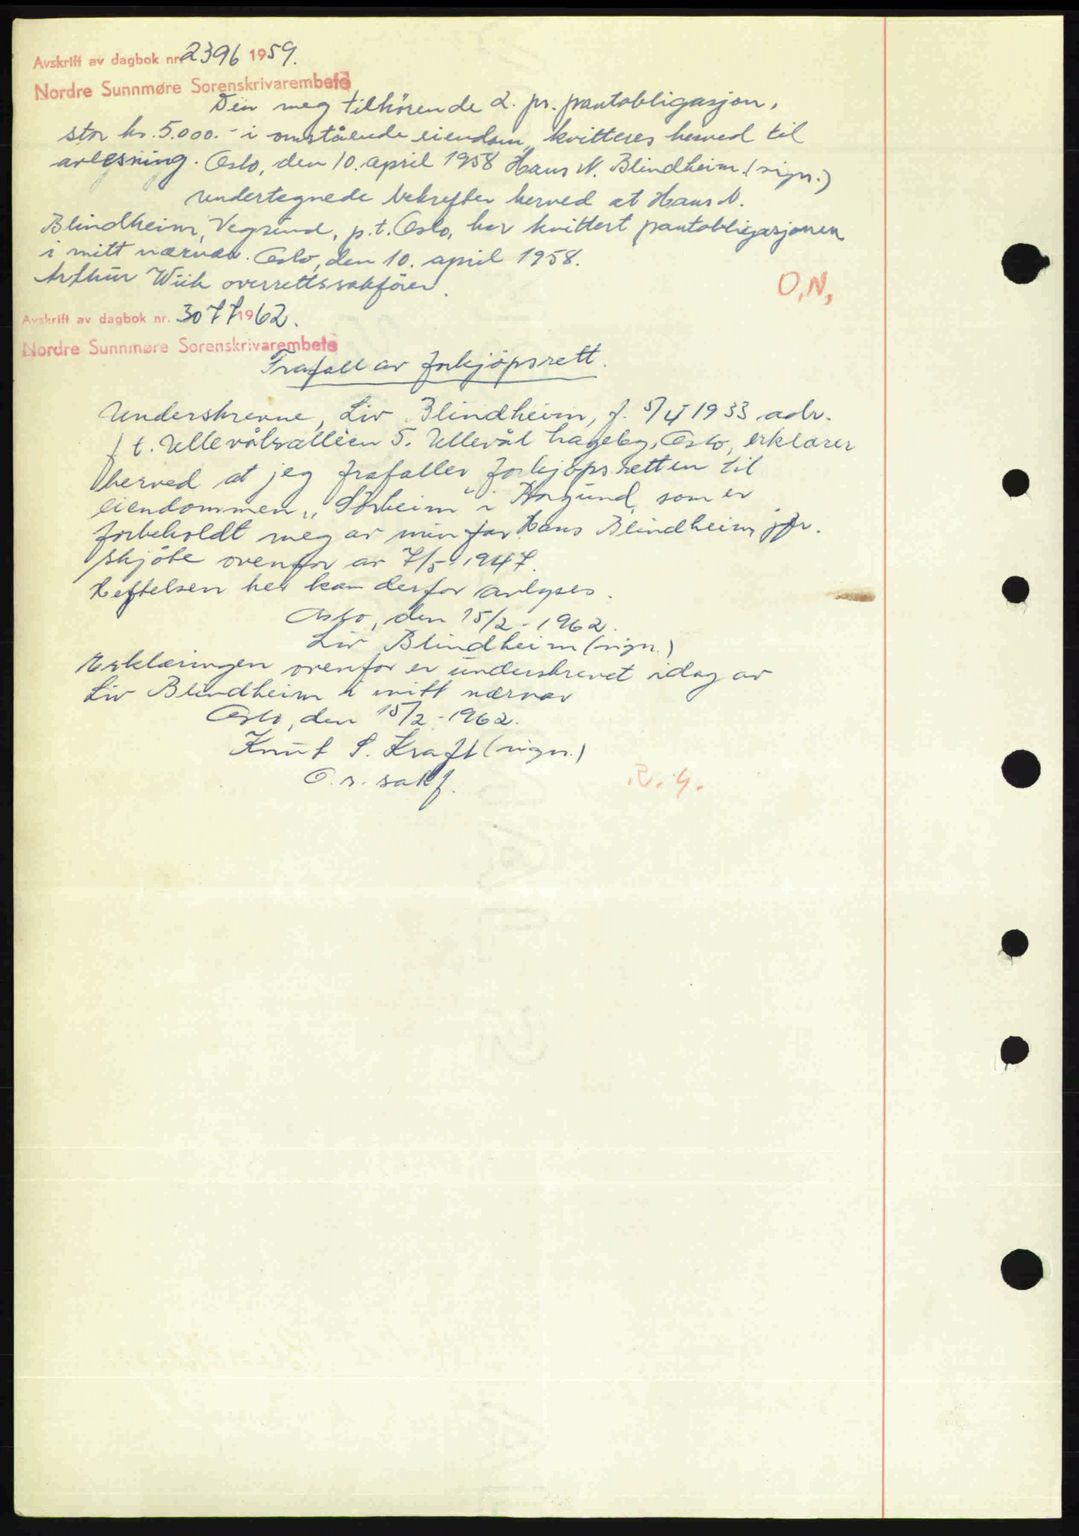 Avskrift av dagbok nr. 2396 1959.
Nordre Sunnmøre Sorenskrivarembete
Den meg tilhörende 2. pr. pantobligasjon,
stor kr. 5.000.- i omstående eiendom, kvitteres herved til
avlesning. Oslo, den 10. april 1958 Hans N. Blindheim. (sign.)
Undertegnede bekrefter herved at Hans N.
Blindheim, Vegsund, p.t. Oslo, har kvittert pantobligasjonen
i mitt nærvær. Oslo, den 10. april 1958.
Arthur Wiik overrettssakförer.
O.N.
Avskrift av dagbok nr. 3077 1962.
Nordre Sunnmøre Sorenskrivarembete
Frafall av forkjöpsrett.
Underskrevne, Liv Blindheim, f. 1933 adr.
f t. Ullevålsalléen 5. Ullevål hageby, Oslo, erklærer
herved at jeg frafaller forkjöpsretten til
eiendommen „Sörheim" i Borgund, som er
forbeholdt meg av min far Hans Blindheim jfr.
skjöte ovenfor av 7/5 1947.
Heftelsen her kan derfor avlyses.
Oslo, den 15/2 - 1962.
Liv Blindheim (sign.)
Erklæringen ovenfor er underskrevet idag av
Liv Blindheim i mitt nærvær
Oslo, den 15/2 - 1962.
Knut S. Kraft (sign.)
O.r. sakf.
R. G.